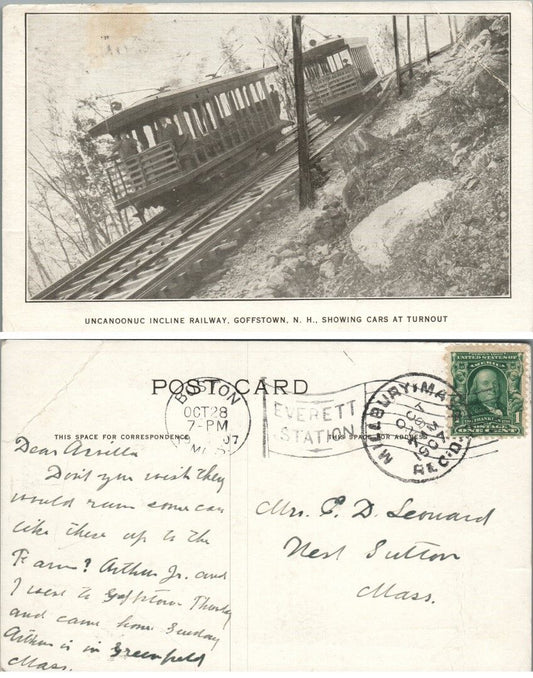 UNCANOONUC INCLINE RAILWAY, GOFFSTOWN, N. H., SHOWING CARS AT TURNOUT
POST CARD
THIS SPACE FOR CORRESPONDENCE
THIS SPACE FOR ADDRESS
BOSTON
OCT 28
7-PM
07
EVERETT
STATION
MILLBURY, MASS.
REC'D.
UNITED STATES OF AMERICA
POSTAGE
ONE CENT
Dear
Don't you wish they
would run some cars
like these up to the
Farm? Arthur Jr. and
I went to Goffstown Thursday
and came home Sunday
Arthur is in Greenfield
Mass.
Mrs. E. D. Leonard
West Sutton
Mass.